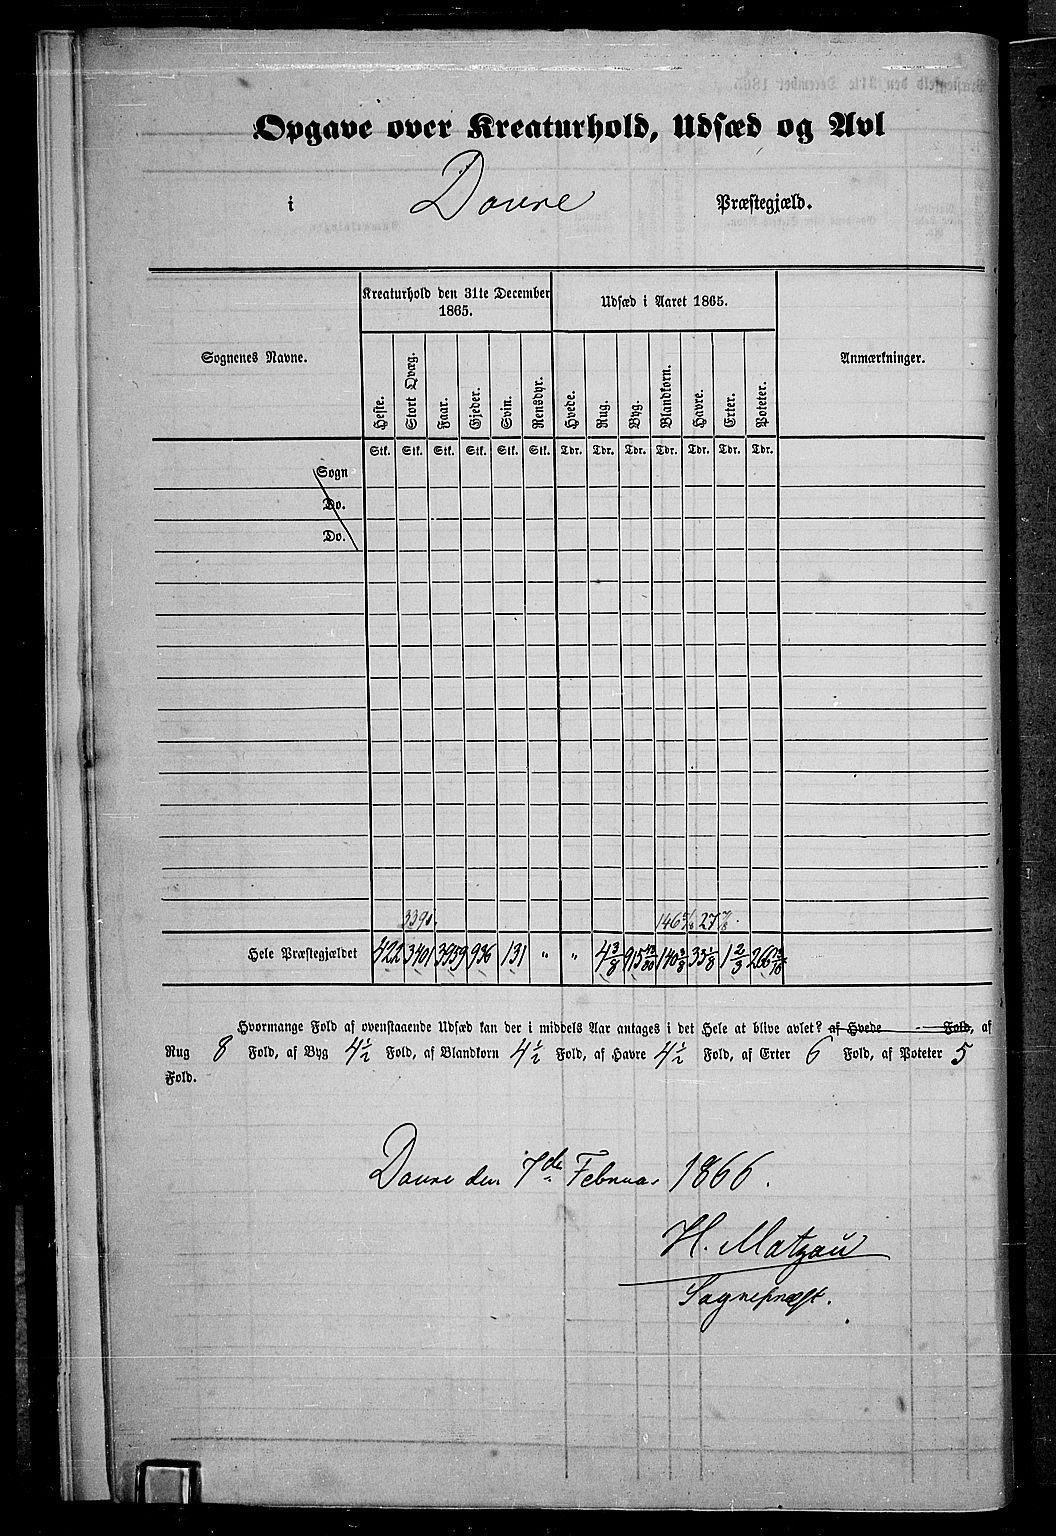 Opgave over Kreaturhold, Udsæd og Avl
i Dovre Præstegjæld.
Sognenes Navne.
Kreaturhold den 31te December 1865.
Udsæd i Aaret 1865.
Anmærkninger.
Heste. Stort Qvæg. Faar. Gjeder. Svin. Rensdyr. Hvede. Rug. Byg. Blandkorn. Havre. Erter. Poteter.
Stk. Stk. Stk. Stk. Stk. Stk. Tdr. Tdr. Tdr. Tdr. Tdr. Tdr. Tdr.
Sogn
Do.
Do.
Hele Præstegjældet 422 3401 3959 936 131 " " 4 3/8 140 3/8 33 1/8 1 2/3
Hvormange Fold af ovenstaaende Udsæd kan der i middels Aar antages i det Hele at blive avlet? af Hvede Fold, af
Rug 8 Fold, af Byg 4 1/2 Fold, af Blandkorn 4 1/2 Fold, af Havre 4 1/2 Fold, af Erter 6 Fold, af Poteter 5
Fold.
Dovre den 7de Februar 1866.
H. Matzau
Sognepræst.